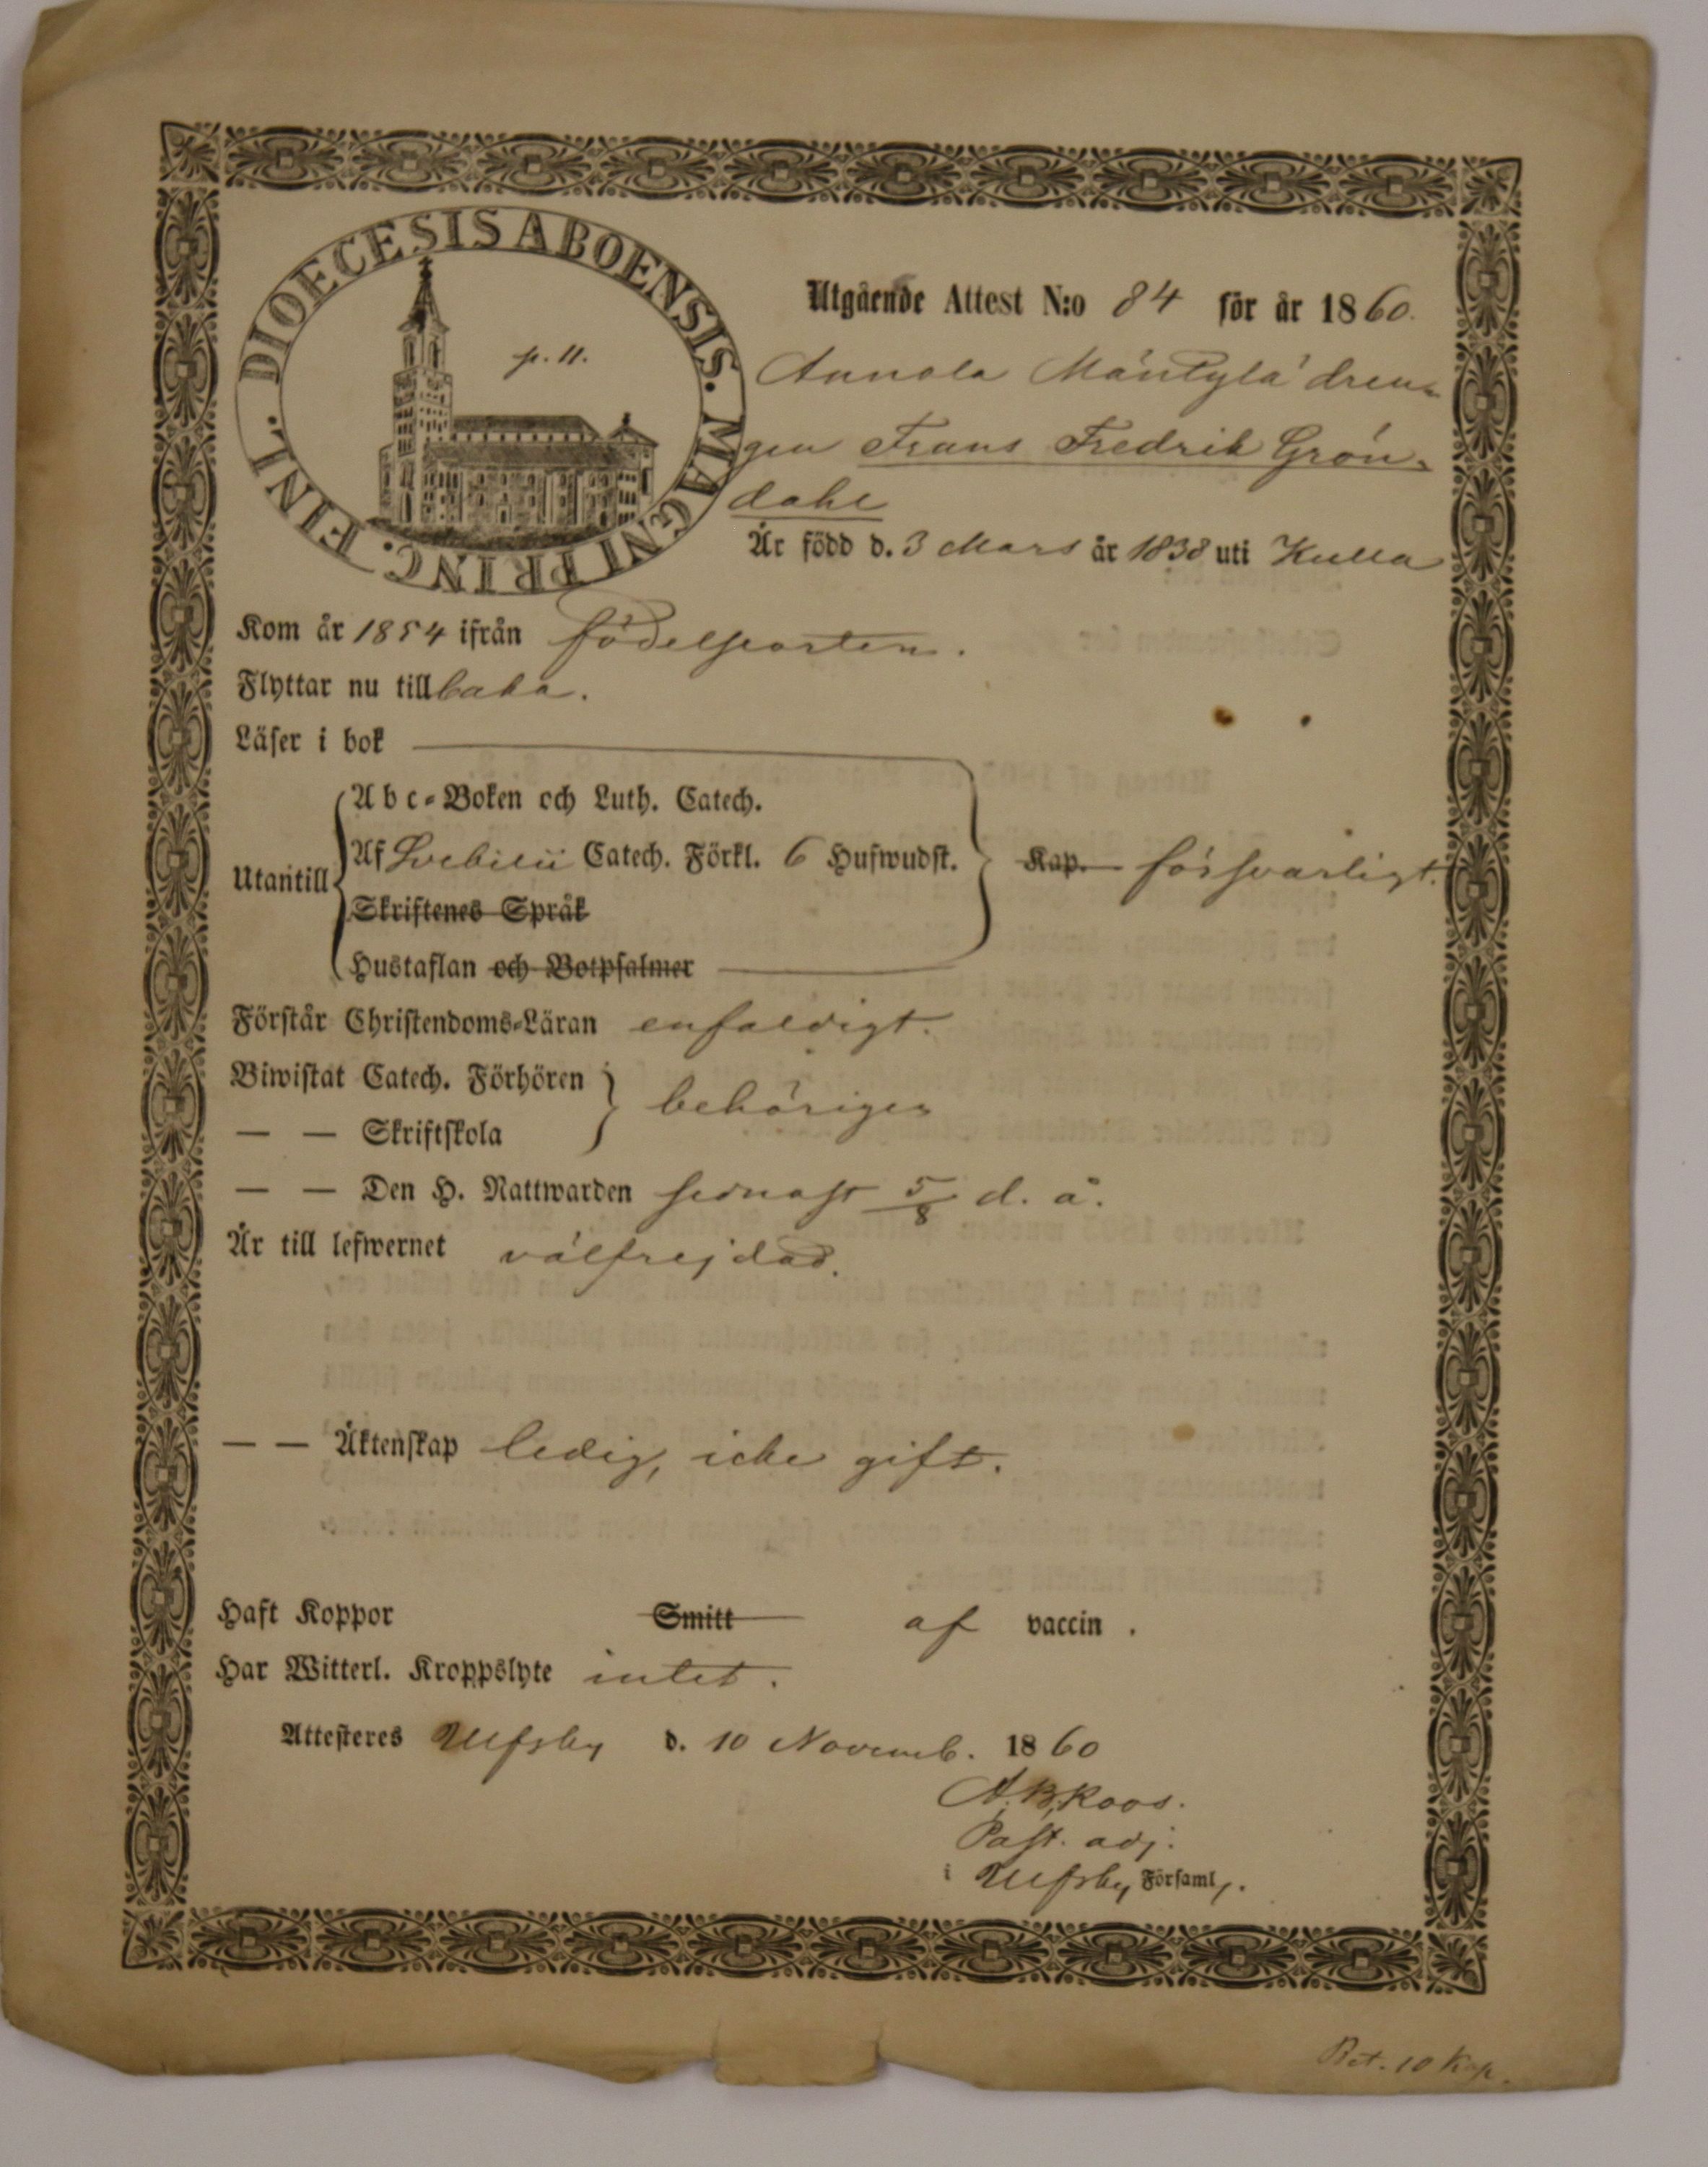 DIOECESIS ABOENSIS. MAGNI PRINC. FINL.
p. 11.
Utgående Attest N:o 84 för år 1860.
Annola Mäntylä dren-
gen Frans Fredrik Grön-
dahl
Är född d. 3 Mars år 1838 uti Kulla
Kom år 1854 ifrån födelseorten.
Flyttar nu tillbaka.
Läser i bok
Abc-Boken och Luth. Catech.
Utantill Af Svebilii Catech. Förkl. 6 Hufwudst. Kap. försvarligt.
Skriftenes Språk
Hustaflan och Botpsalmer
Förstår Christendoms-Läran enfaldigt.
Biwistat Catech. Förhören behörigen
— — Skriftskola
— — Den H. Nattwarden sednast 5/8 d. å.
Är till lefwernet välfrejdad.
— — Äktenskap ledig, icke gift.
Haft Koppor Smitt af vaccin.
Har Witterl. Kroppslyte intet.
Attesteres Ulfsby d. 10 Novemb. 1860
A. B. Roos.
Past. adj.
i Ulfsby Församl.
Bet. 10 Kop.